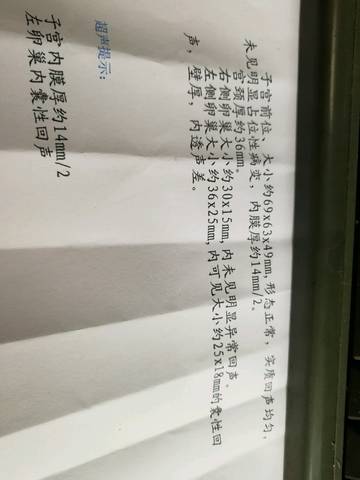 子宫前位、大小约69x63x49mm,形态正常,实质回声均匀,
未见明显占位性病变,内膜厚约14mm/2。
宫颈厚约36mm。
右侧卵巢大小约30x15mm,内未见明显异常回声。
左侧卵巢大小约36x25mm,内可见大小约25x18mm的囊性回
声,壁厚,内透声差。
超声提示:
子宫内膜厚约14mm/2
左卵巢内囊性回声